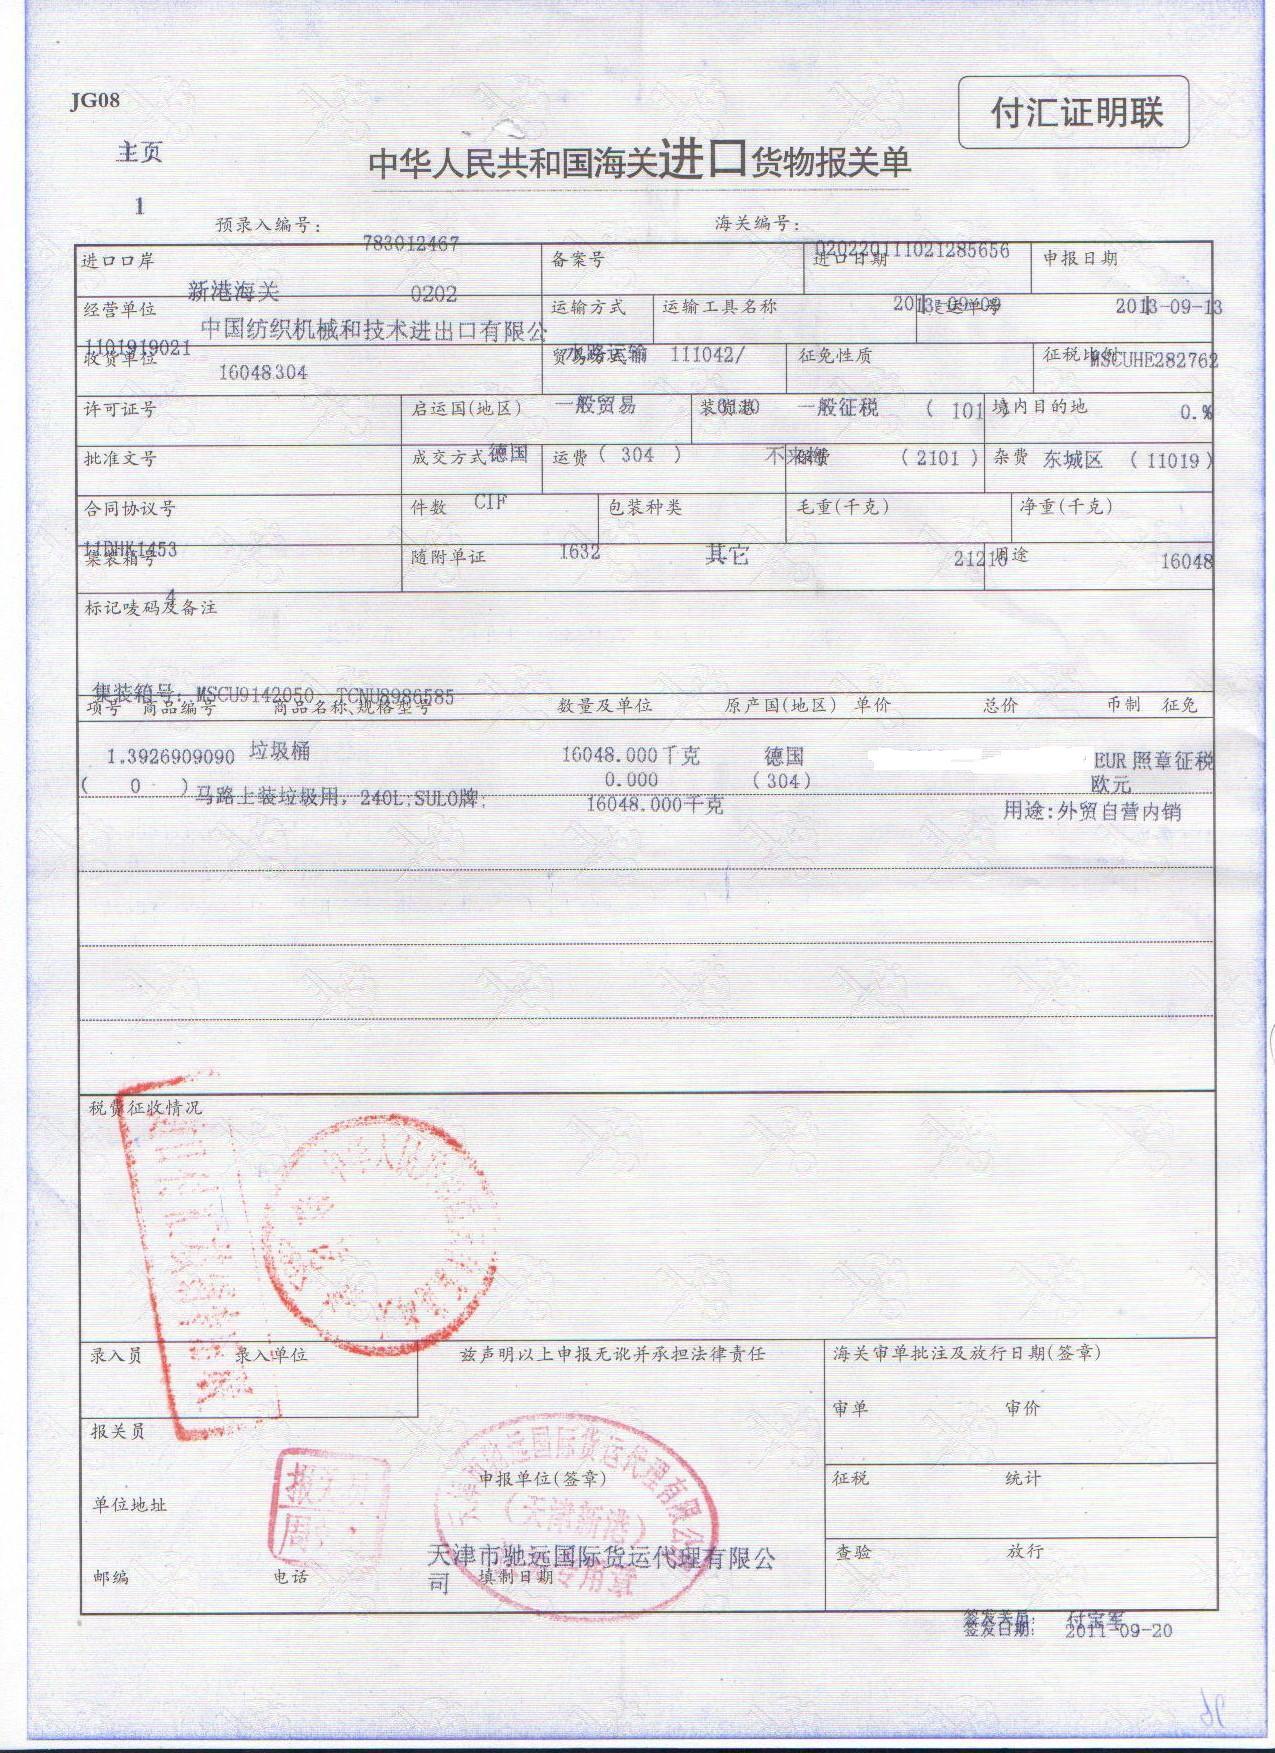 JG08
付汇证明联
主页
中华人民共和国海关进口货物报关单
1
预录入编号: 783012467
海关编号: 020220111021285656
进口口岸
备案号
进口日期
申报日期
新港海关 0202
2013-09-09
2013-09-13
经营单位
运输方式
运输工具名称
提运单号
中国纺织机械和技术进出口有限公
1101919021
水路运输 111042/
MSCUHE282762
收货单位
贸易方式
征免性质
征税比例
16048304
一般贸易 0110
一般征税 ( 101 )
0.%
许可证号
启运国(地区)
装货港
境内目的地
德国 ( 304 )
不来梅 ( 2101 )
东城区 ( 11019 )
批准文号
成交方式
运费
保费
杂费
CIF
合同协议号
件数
包装种类
毛重(千克)
净重(千克)
11DHK1453
1632
其它
21216
16048
集装箱号
随附单证
用途
4
标记唛码及备注
集装箱号: MSCU9142050, TCNU8986585
项号 商品编号 商品名称、规格型号 数量及单位 原产国(地区) 单价 总价 币制 征免
1.3926909090 垃圾桶 16048.000千克 德国 EUR 照章征税
( 0 ) 0.000 (304) 欧元
马路上装垃圾用, 240L;SULO牌; 16048.000千克 用途:外贸自营内销
税费征收情况
录入员 录入单位
兹声明以上申报无讹并承担法律责任
海关审单批注及放行日期(签章)
审单 审价
报关员
征税 统计
申报单位(签章)
单位地址
查验 放行
天津市驰远国际货运代理有限公
司
邮编 电话 填制日期
签发关员: 付宝军
签发日期: 2011-09-20
96